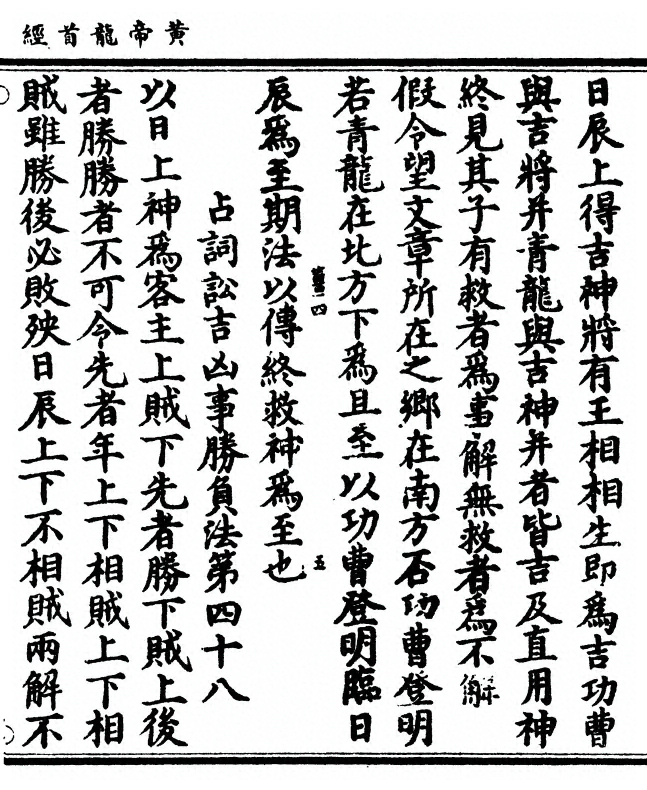 黃帝龍首經
日辰上得吉神將有王相相生即爲吉功曹
與吉將并青龍與吉神并者皆吉及直用神
終見其子有救者爲事解無救者爲不解
假令望文章所在之鄉在南方否功曹登明
若青龍在北方下爲且至以功曹登明臨日
辰爲至期法以傳終救神爲至也
四
五
占詞訟吉凶事勝負法第四十八
以日上神爲客主上賊下先者勝下賊上後
者勝勝者不可令先者年上下相賊上下相
賊雖勝後必敗殃日辰上下不相賊兩解不